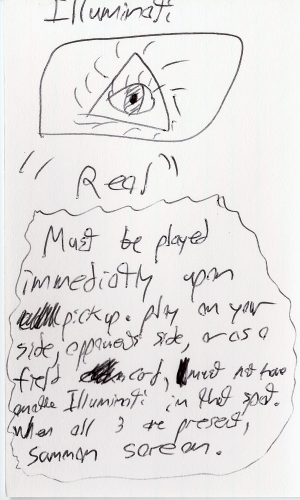 Illuminati
"Real"
Must be played
immediatly upon
pickup. play on your
side, opponents side, or as a
field card, must not have
another Illuminati in that spot.
When all 3 are present,
summon